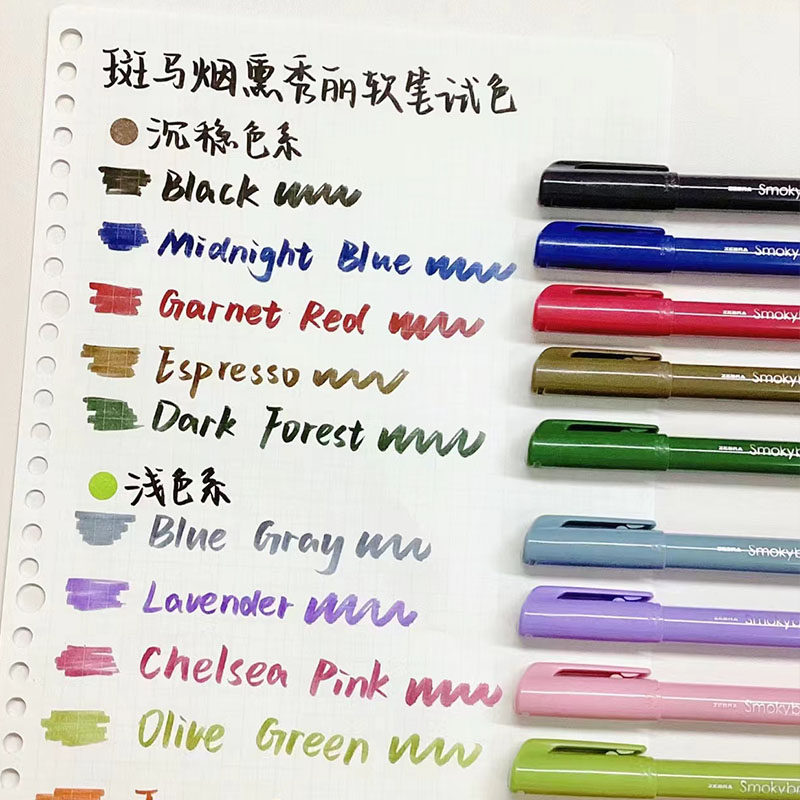 斑马烟熏秀丽软笔试色
沉稳色系
Black
Midnight Blue
Garnet Red
Espresso
Dark Forest
浅色系
Blue Gray
Lavender
Chelsea Pink
Olive Green
ZEBRA Smoky
ZEBRA Smoky
ZEBRA Smokyb
ZEBRA Smokyb
ZEBRA Smokyb
ZEBRA Smokyb
ZEBRA Smokyb
ZEBRA Smokyb
ZEBRA Smokyb